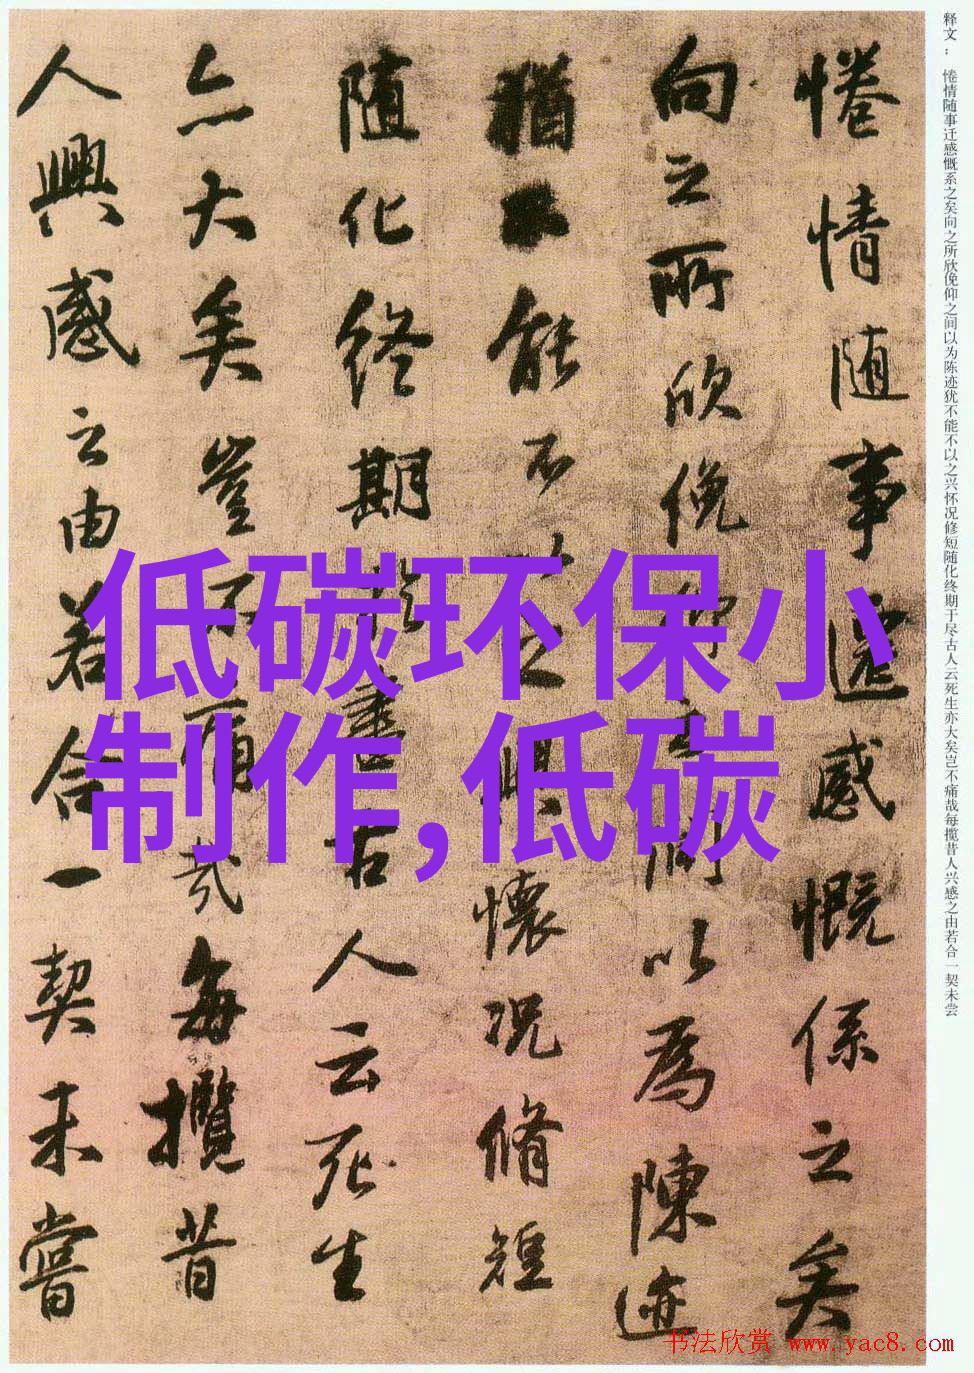 释文：倦情随事迁感慨系之矣向之所欣俛仰之间以为陈迹犹不能不以之兴怀况修短随化终期于尽古人云死生亦大矣岂不痛哉每揽昔人兴感之由若合一契未尝
惓情随事遷感慨係之矣
向之所欣俛仰之間以為陳迹
猶不能不以之興懷況脩短
随化終期於盡古人云死生
亦大矣豈不痛哉每攬昔
人興感之由若合一契未嘗
低碳环保小
制作,低碳
书法欣赏 www.yac8.com